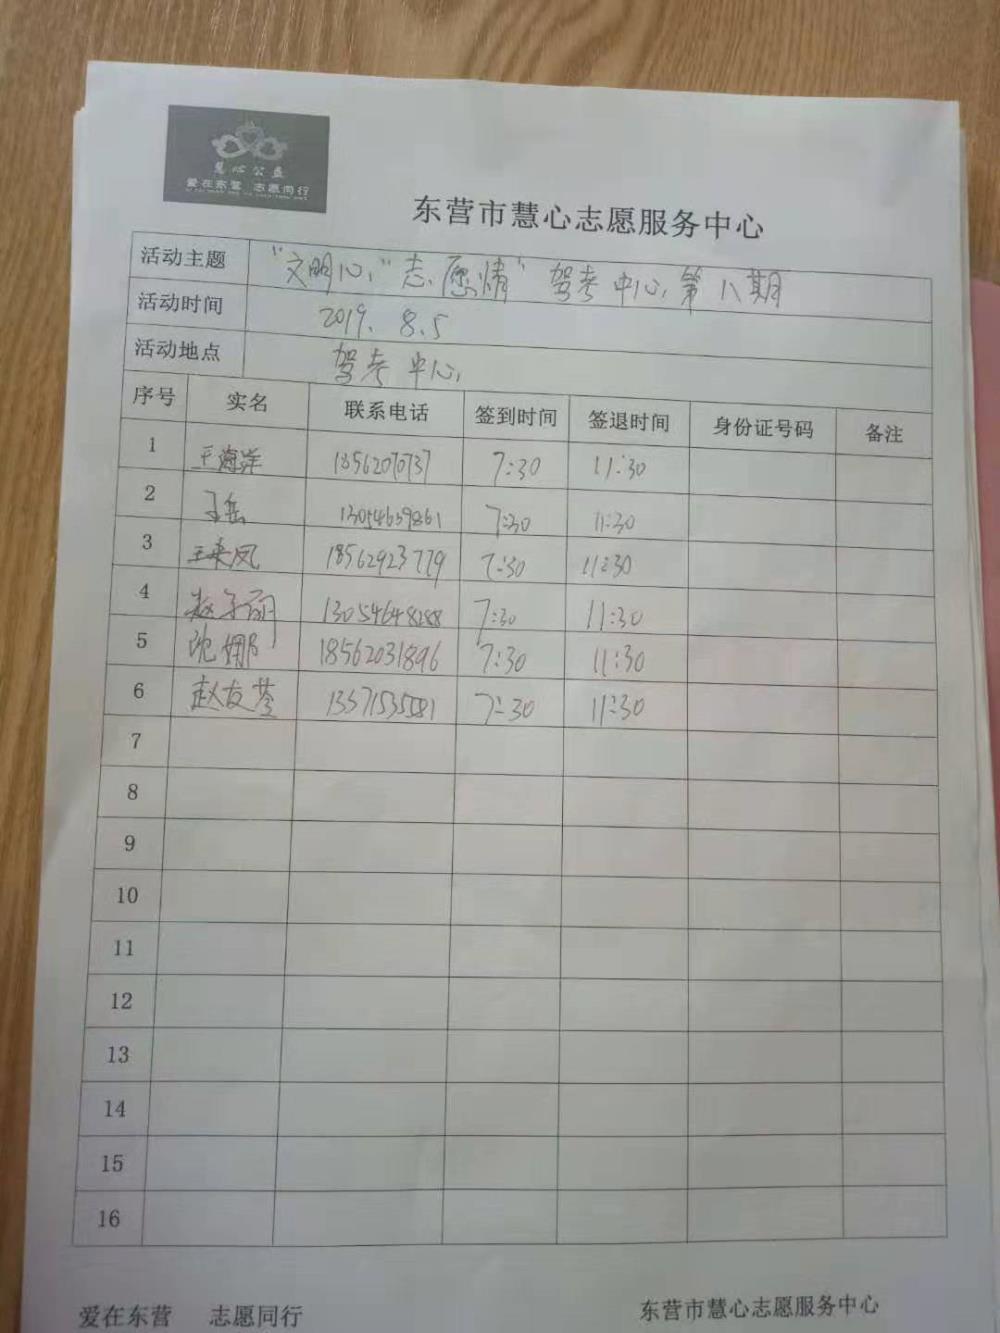 慧心公益
爱在东营 志愿同行
东营市慧心志愿服务中心
活动主题 "文明心""志愿情" 驾考中心第八期
活动时间 2019.8.5
活动地点 驾考中心
序号 实名 联系电话 签到时间 签退时间 身份证号码 备注
1 王海洋 18562070737 7:30 11:30
2 13054659861 7:30 11:30
3 王来凤 18562923779 7:30 11:30
4 赵子丽 7:30 11:30
5 沈娜 18562031896 7:30 11:30
6 赵友苓 7:30 11:30
7
8
9
10
11
12
13
14
15
16
爱在东营 志愿同行 东营市慧心志愿服务中心